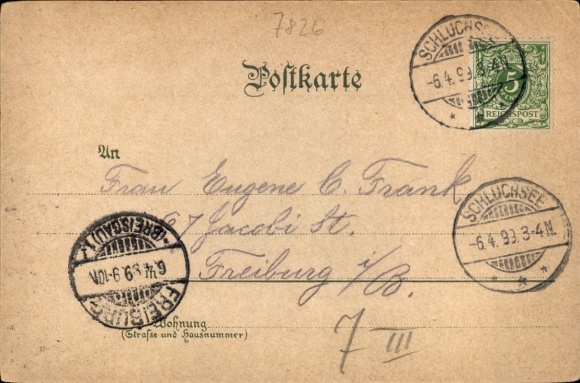 7826
SCHLUCHSEE
-6.4.99.3-4N.
5
REICHSPOST
Postkarte
An
Frau Eugene C. Frank
67 Jacobi St.
Freiburg i/B.
SCHLUCHSEE
-6.4.99.3-4N.
(BREISGAU)1.
6/4.99.9-10N.
FREIBURG
Wohnung
(Strasse und Hausnummer)
7 III